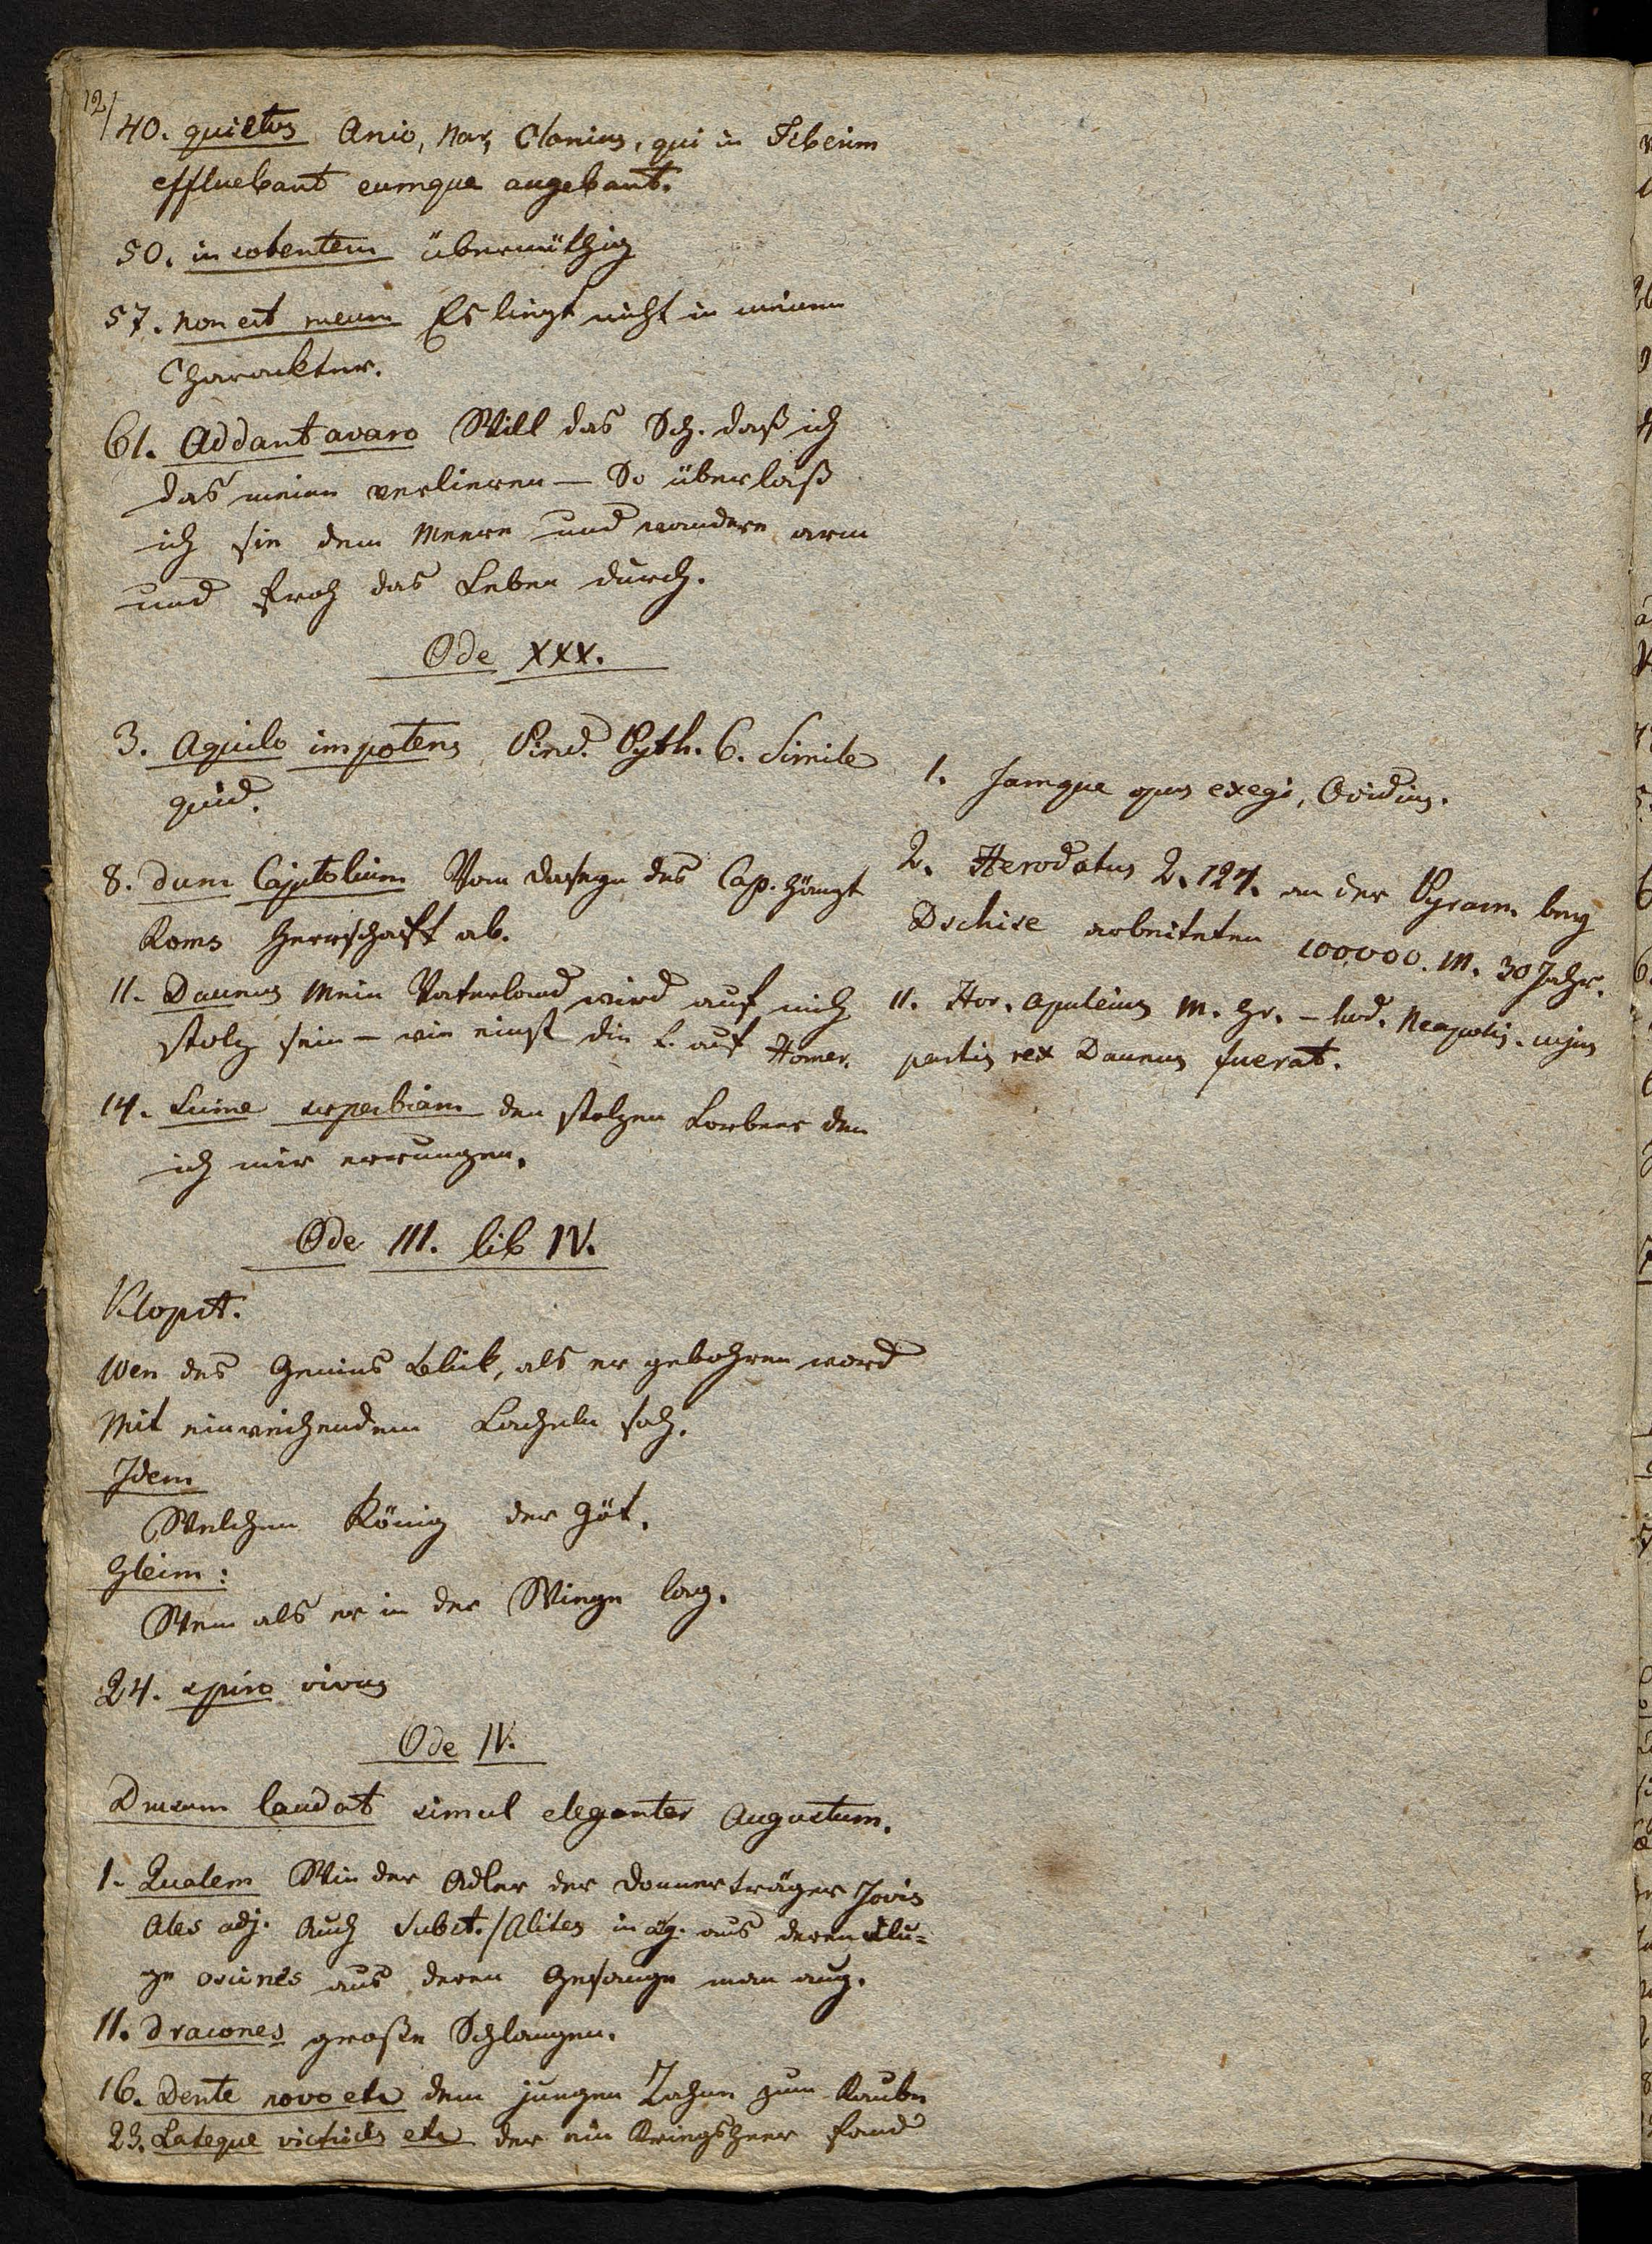 12/
40. quietos Anio, Nar, Clanius, qui in Tiberim
effluebant eumque augebant.
50. insolentem übermüthig
57. non est meum Es liegt nicht in meinem
Charackter.
61. Addant avaro Will das Sch. daß ich
das meine verlieren – So überlaß
ich sie dem Meere und wandere arm
und froh das Leben durch.
Ode XXX.
3. Aquilo impotens Pind. Pyth. 6. Simile
quid.
8. dum Capitolium Vom Daseyn des Cap. hängt
Roms Herrschaft ab.
11. Daunus Mein Vaterland wird auf mich
stolz sein – wie einst die L. auf Homer.
14. Sume superbiam den stolzen Lorbeer den
ich mir errungen.
1. Jamque opus exegi, Ovidius.
2. Herodatus 2. 124. an der Pyram. bey
Dschise arbeiteten 100,000. M. 30 Jahr.
11. Hor. Apuleius M. Gr. – hod. Neapolis. cujus
partis rex Daunus fuerat.
Ode III. lib IV.
Klopst.
Wen des Genius Blick, als er gebohren ward
Mit einweihendem Lacheln sah.
Idem
Welchen König der Göt.
Gleim:
Wem als er in der Wiege lag.
24. spiro vivus
Ode IV.
Drusum laudat simul eleganter Augustum.
1. Qualem Wie der Adler der Donnerträger Jovis
Ales adj. Auch Subst. / Alites in aug. aus deren Flu=
ge oscines aus deren Gesange man aug.
11. dracones große Schlangen.
16. Dente novo etc dem jungen Zahne zum Raube
23. Lateque victrices etc der ein Kriegsheer fand